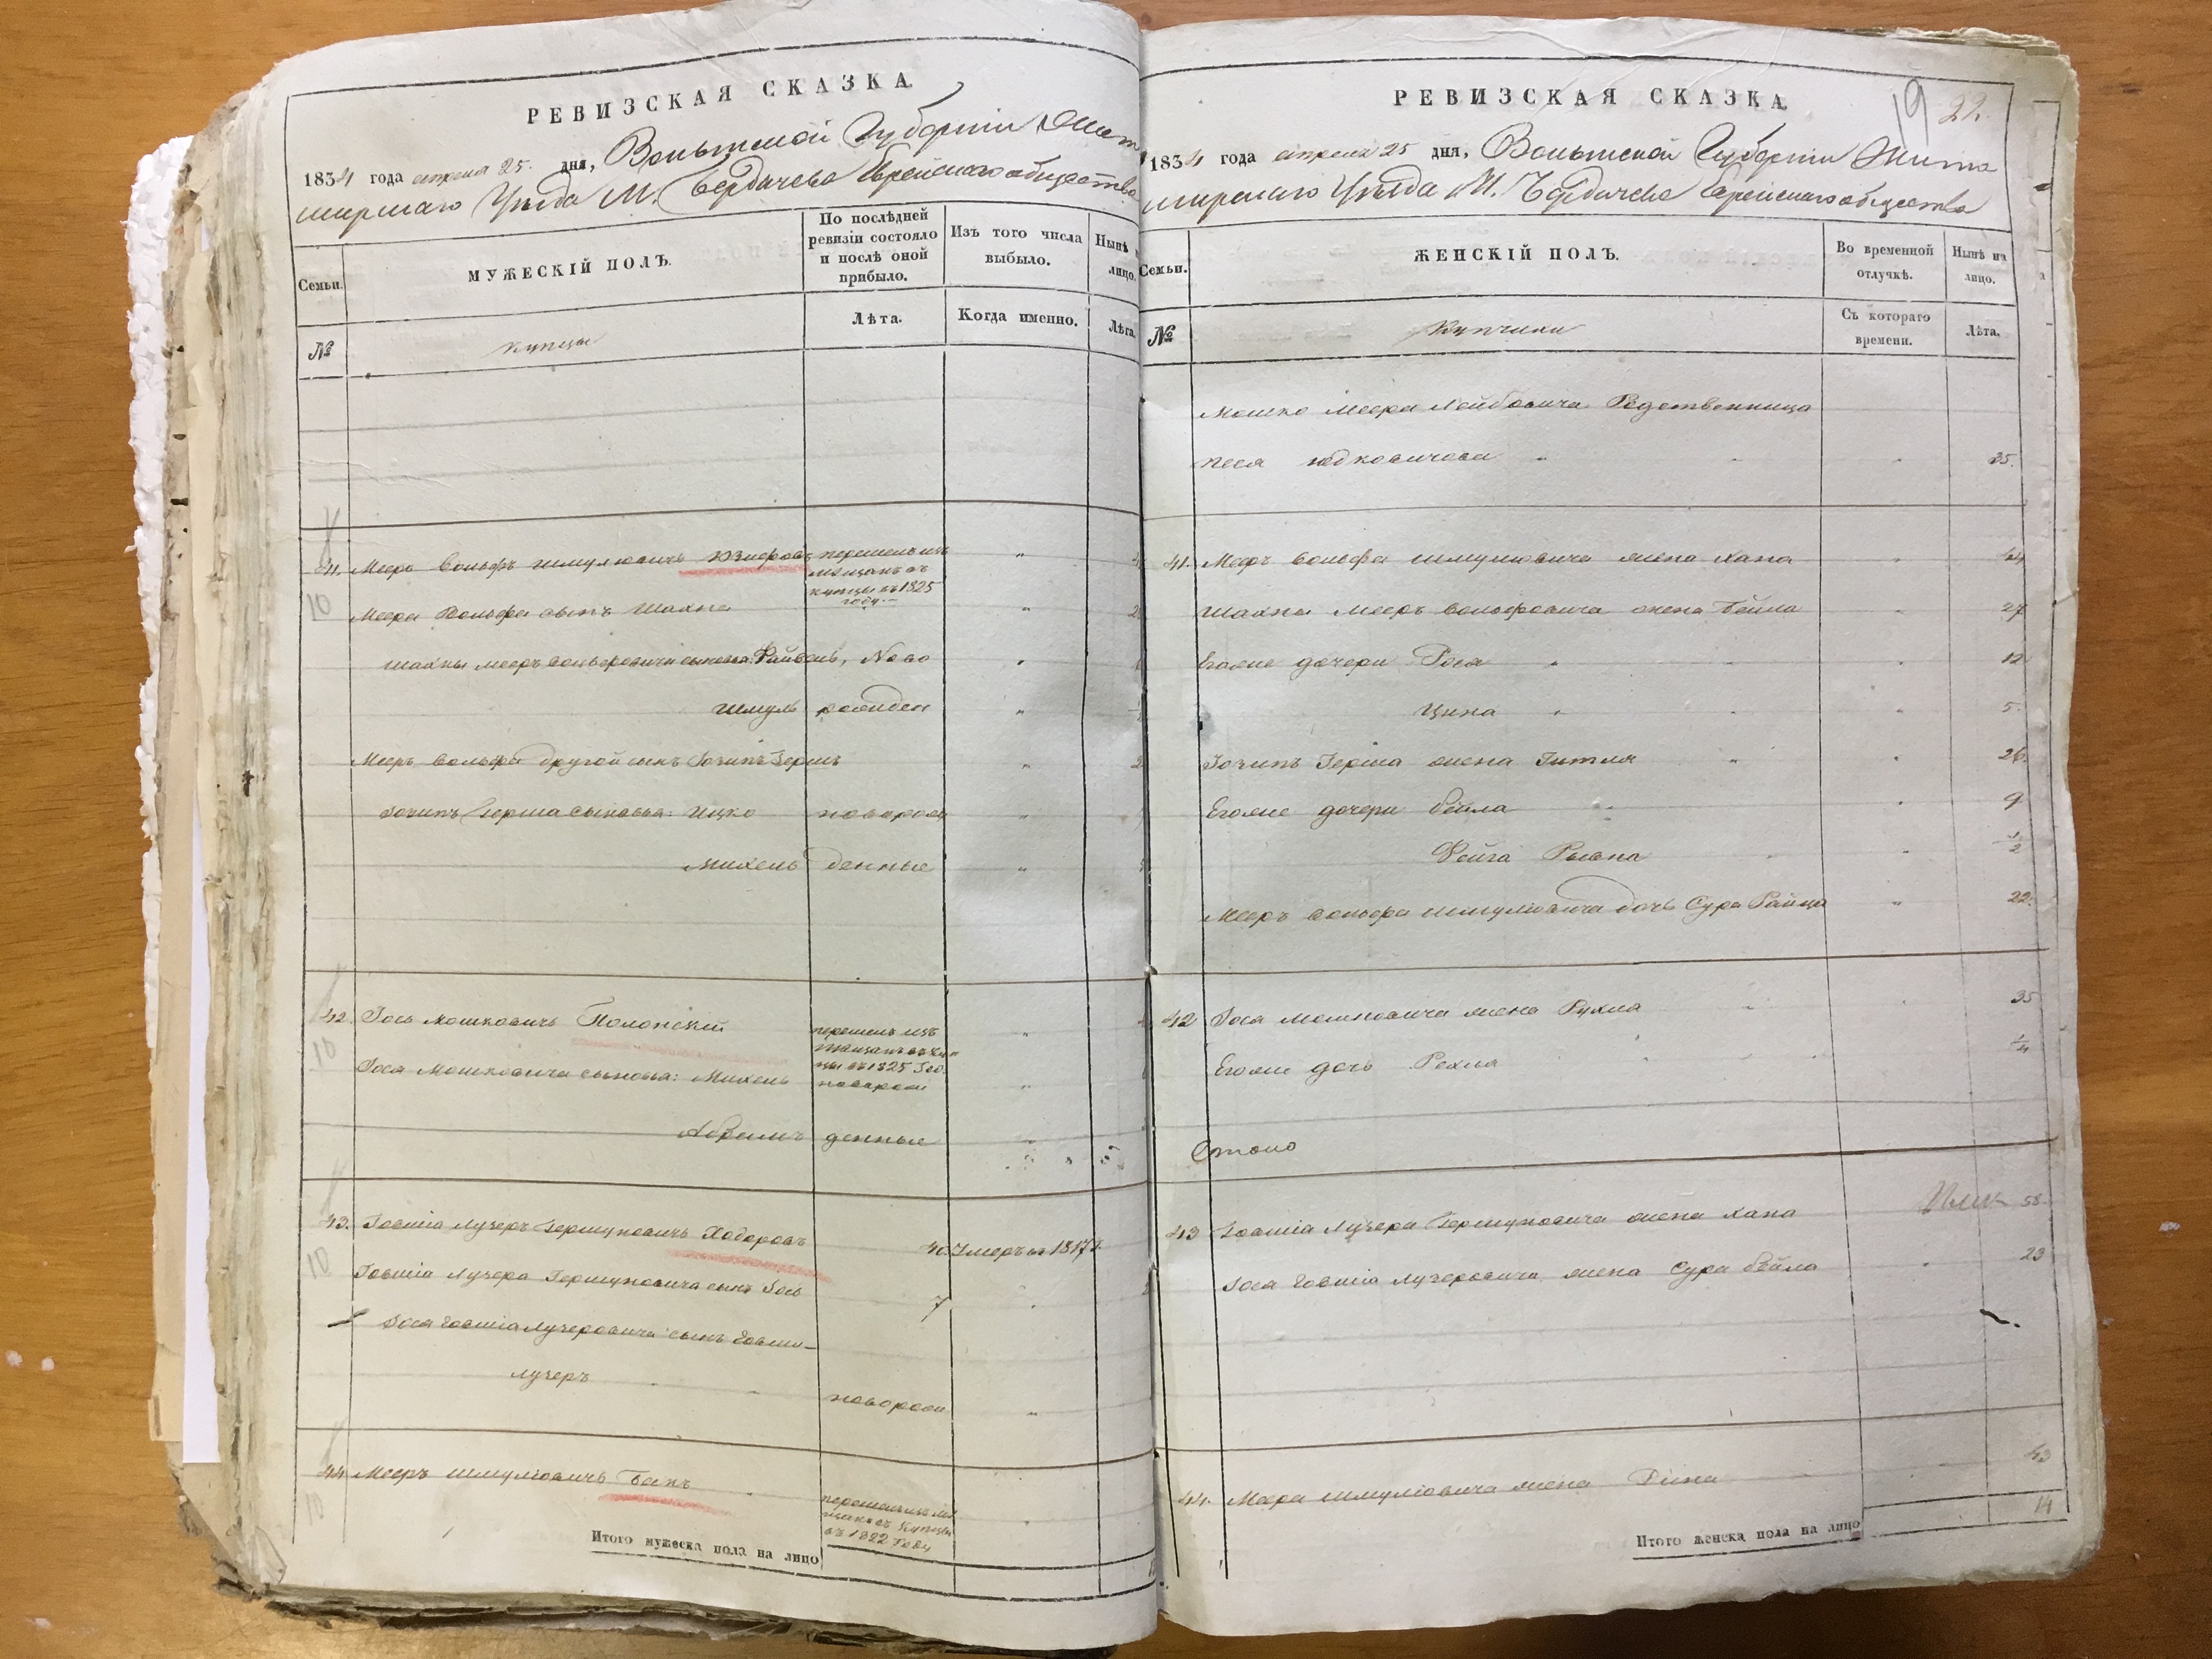 РЕВИЗСКАЯ СКАЗКА
1834 года апреля 25 дня, Волынской Губернии Жито
мирскаго Уѣзда М. Бердичева Еврейскаго общества
Семьи.
МУЖЕСКІЙ ПОЛЪ.
По послѣдней ревизіи состояло и послѣ оной прибыло.
Изъ того числа выбыло.
Нынѣ
лицо.
№
купцы
Лѣта.
Когда именно.
Лѣта
41. Мееръ Вольфъ Шмулювичь
перешелъ изъ
мещанъ въ
купцы въ 1825
году.
10
Меера Вольфа сынъ Шахна
Шахны Мееръ Вольфовича сыновья: Файвель, Ново
Шмуль рожден
Мееръ Вольфа другой сынъ Іосипъ Гершъ
Іосипъ Герша сыновья: Ицко новорож
Михель денные
42. Іось Мошковичь Полонскій
перешелъ изъ
мещанъ въ куп
цы въ 1825 го.
10
Іося Мошковича сыновья: Михель новорож
Абрамъ денные
43. Іовшіа Лузеръ Гершуновичь Ходоровъ 40 Умеръ въ 1817 г.
10
Іовшіа Лузера Гершуновича сынъ Іось 7
Іося Іовшіа Лузеровича сынъ Іовши-
Лузеръ новорож
44 Мееръ Шмуліовичь Бакъ
перешелъ изъ ме
щанъ въ купцы
въ 1822 году
10
Итого мужеска пола на лицо
РЕВИЗСКАЯ СКАЗКА
19 22.
1834 года апреля 25 дня, Волынской Губернии Жито
мирскаго Уѣзда М. Бердичева Еврейскаго общества
Семьи.
ЖЕНСКІЙ ПОЛЪ.
Во временной отлучкѣ.
Нынѣ на лицо.
№
Купчихи
Съ котораго времени.
Лѣта.
Мошко Меера Лейбовича Родственница
Песя Юдковичова 35.
41. Мееръ Вольфа Шмулиовича жена Хана 44
Шахны Мееръ Вольфовича жена Бейла 27
Егожъ дочери Роза 12
Цина 5.
Іосипъ Герша жена Гитля 26.
Егоже дочери Бейла 9
Фейга Рывна 1/2
Мееръ Вольфа Шмулиовича дочь Сура Райца 22.
42 Іося Мошковича жена Рухля 35
Егоже дочь Рехля 1/4
43 Іовшіа Лузера Гершуновича жена Хана 58.
Іося Іовшіа Лузеровича жена Сура Бейла 23
44. Меера Шмуліовича жена Рина 43
Итого женска пола на лицо 14